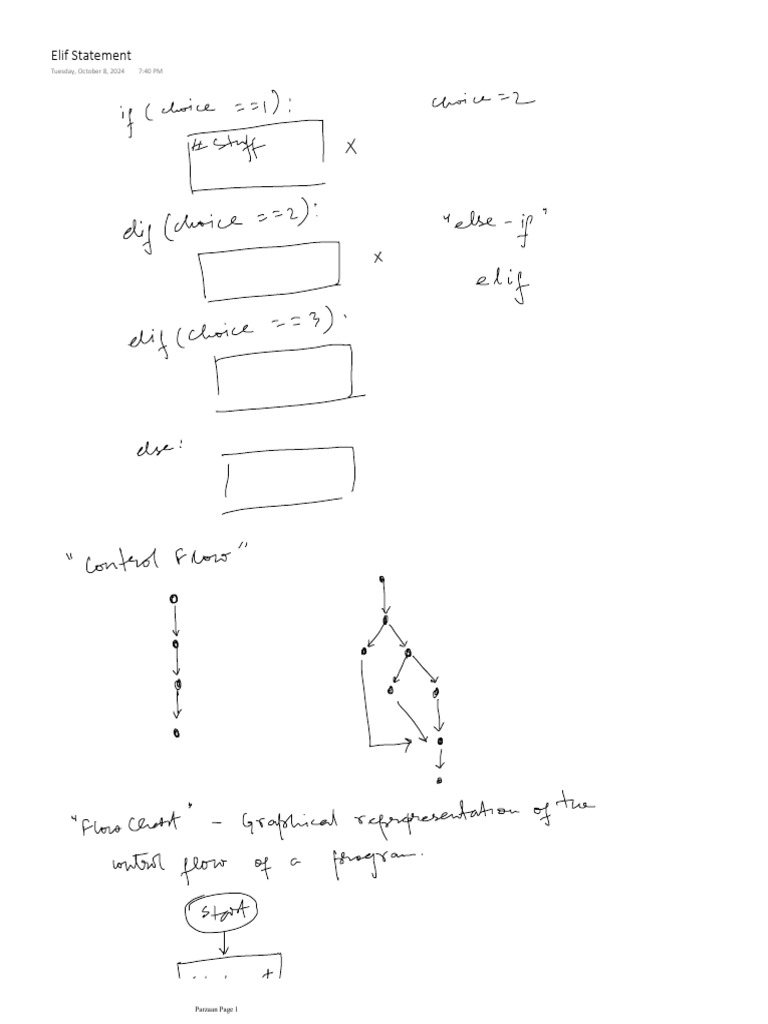 Elif Statement
Tuesday, October 8, 2024 7:40 PM
if (choice ==1): choice =2
# stuff x
elif (choice ==2): "else-if"
x
elif
elif (choice ==3).
else:
"Control Flow"
"Flow Chart" - Graphical representation of the
control flow of a program.
Start
Parzaan Page 1